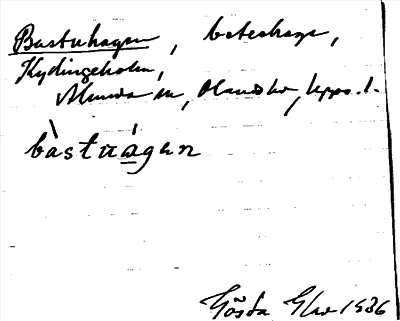 Bastuhagen, beteshage,
Kydingeholm,
Almunge sn, Olands hd, Upps. l.
bàstuágen
Gösta Elw 1936